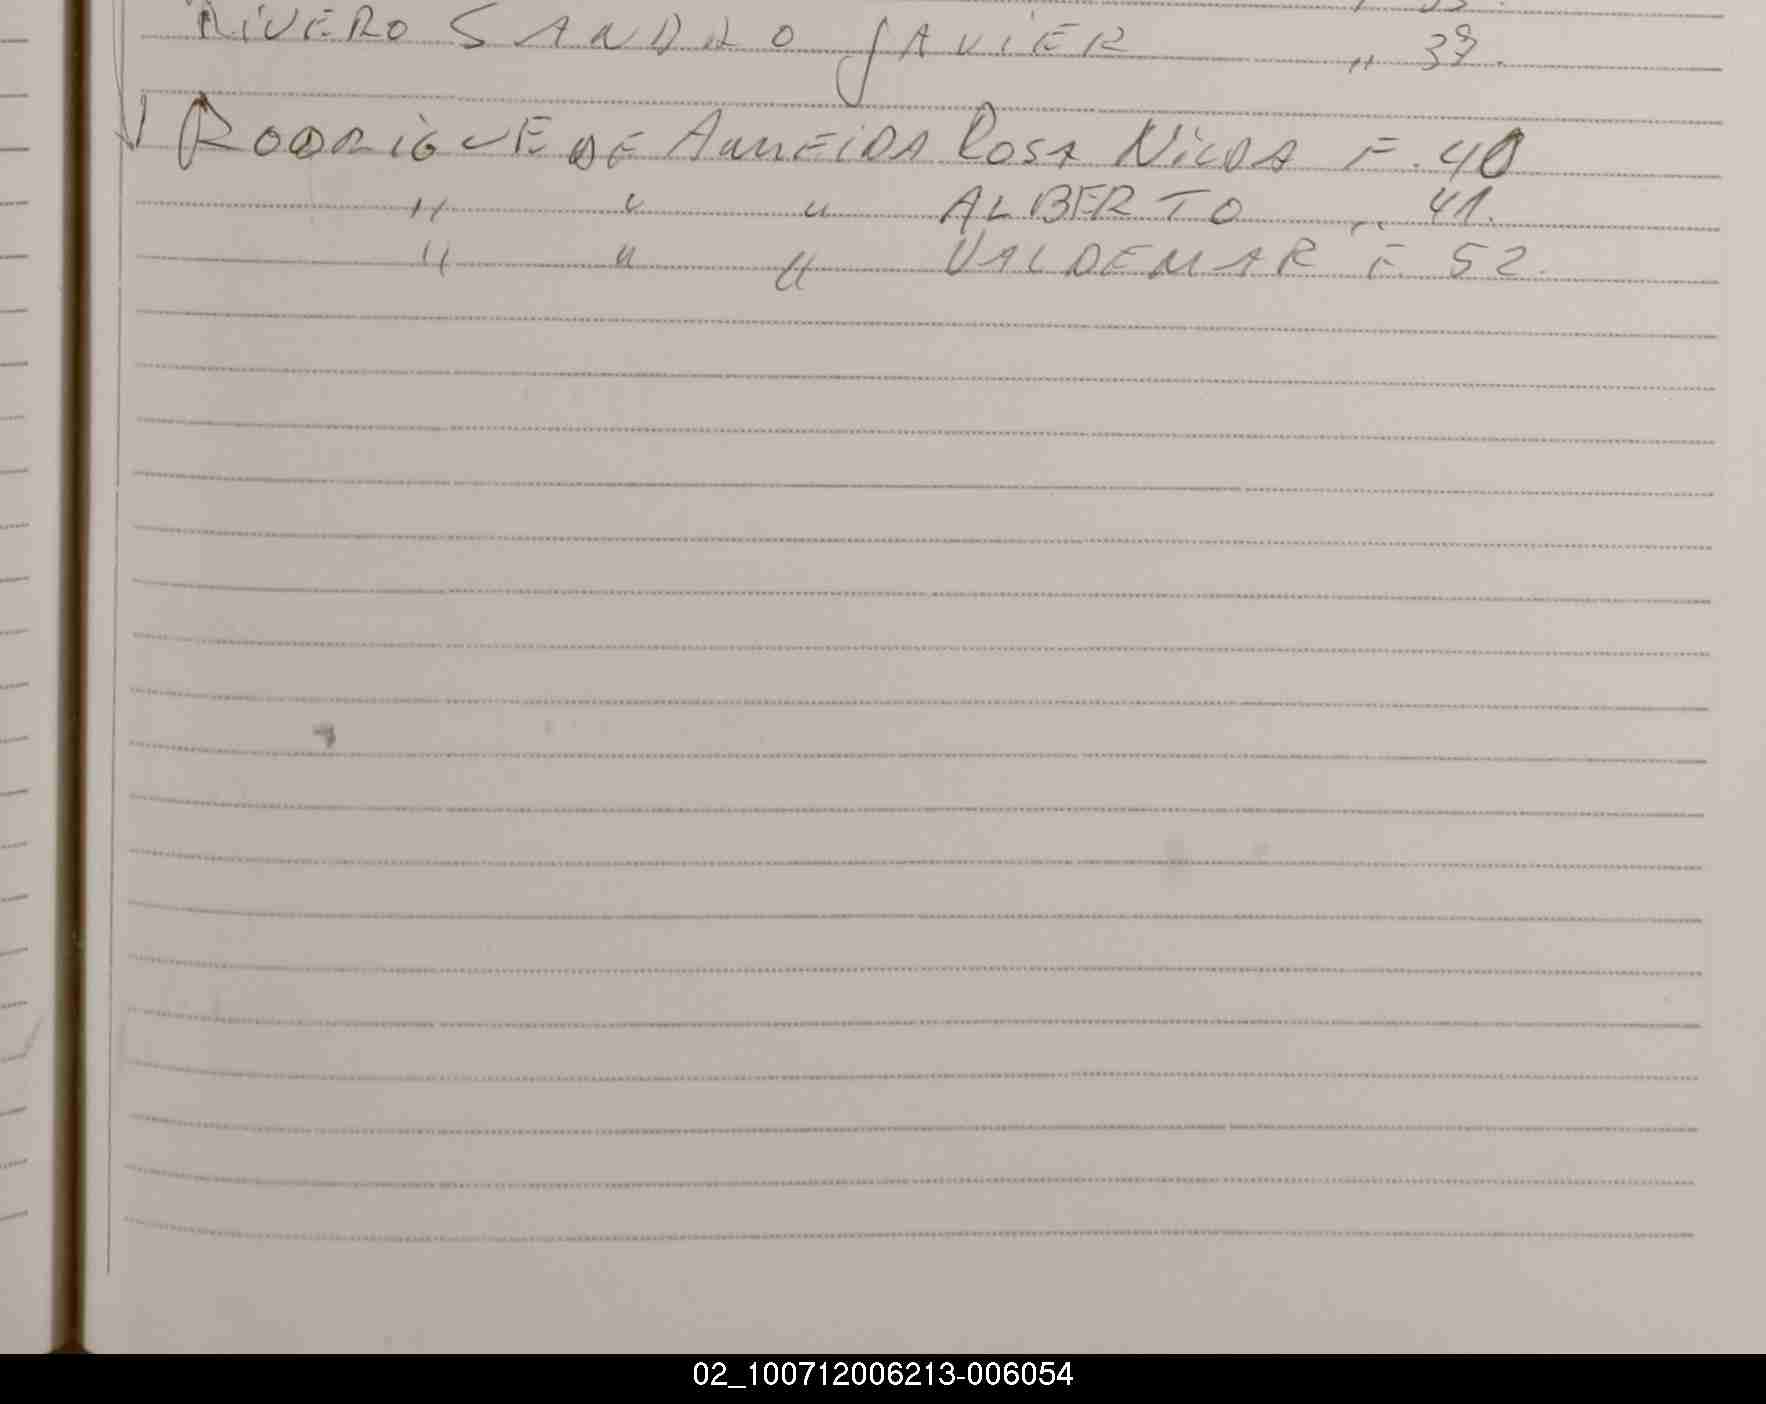 RIVERO SANDRO JAVIER " 39.
RODRIGUE DE ALMEIDA ROSA NILDA F. 40
" " " ALBERTO " 41.
" " " VALDEMAR F 52.
02_100712006213-006054